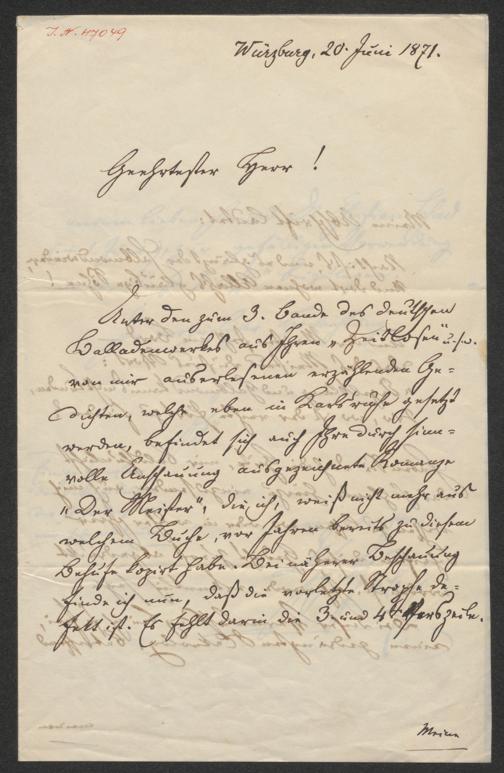 I. N. 47049
Würzburg, 20. Juni 1871.
Geehrtester Herr!
Unter den zum 3. Bande des deutschen
Balladenwerkes aus Ihren „Zeitlosen" u.s.w.
von mir auserlesenen erzählenden Ge-
dichten, welche eben in Karlsruhe gesetzt
werden, befindet sich auch Ihre durch sinn-
volle Anschauung ausgezeichnete Romanze
„Der Meister", die ich, weiß nicht mehr aus
welchem Buche, vor Jahren bereits zu diesem
Behufe kopirt habe. Bei näherer Beschauung
finde ich nun, daß die vorletzte Strophe de-
fekt ist. Es fehlt darin die 3. und 4. Verszeile.
Meine